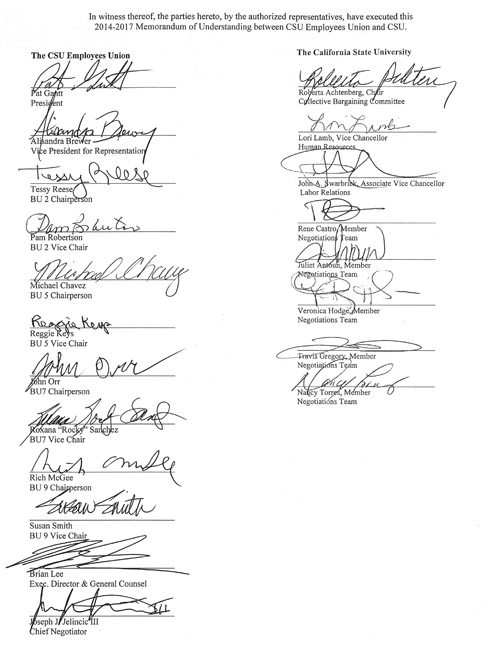 In witness thereof, the parties hereto, by the authorized representatives, have executed this
2014-2017 Memorandum of Understanding between CSU Employees Union and CSU.
The CSU Employees Union
Pat Gantt
Pat Gantt
President
Alisandra Brewer
Alisandra Brewer
Vice President for Representation
Tessy Reese
Tessy Reese
BU 2 Chairperson
Pam Robertson
Pam Robertson
BU 2 Vice Chair
Michael Chavez
Michael Chavez
BU 5 Chairperson
Reggie Keys
Reggie Keys
BU 5 Vice Chair
John Orr
John Orr
BU7 Chairperson
Roxana "Rocky" Sanchez
BU7 Vice Chair
Rich McGee
BU 9 Chairperson
Susan Smith
Susan Smith
BU 9 Vice Chair
Brian Lee
Exec. Director & General Counsel
Joseph J. Jelincic III
Chief Negotiator
The California State University
Roberta Achtenberg
Roberta Achtenberg, Chair
Collective Bargaining Committee
Lori Lamb
Lori Lamb, Vice Chancellor
Human Resources
John A. Swarbrick, Associate Vice Chancellor
Labor Relations
Rene Castro, Member
Negotiations Team
Juliet Antoun, Member
Negotiations Team
Veronica Hodge, Member
Negotiations Team
Travis Gregory, Member
Negotiations Team
Nancy Torres, Member
Negotiations Team